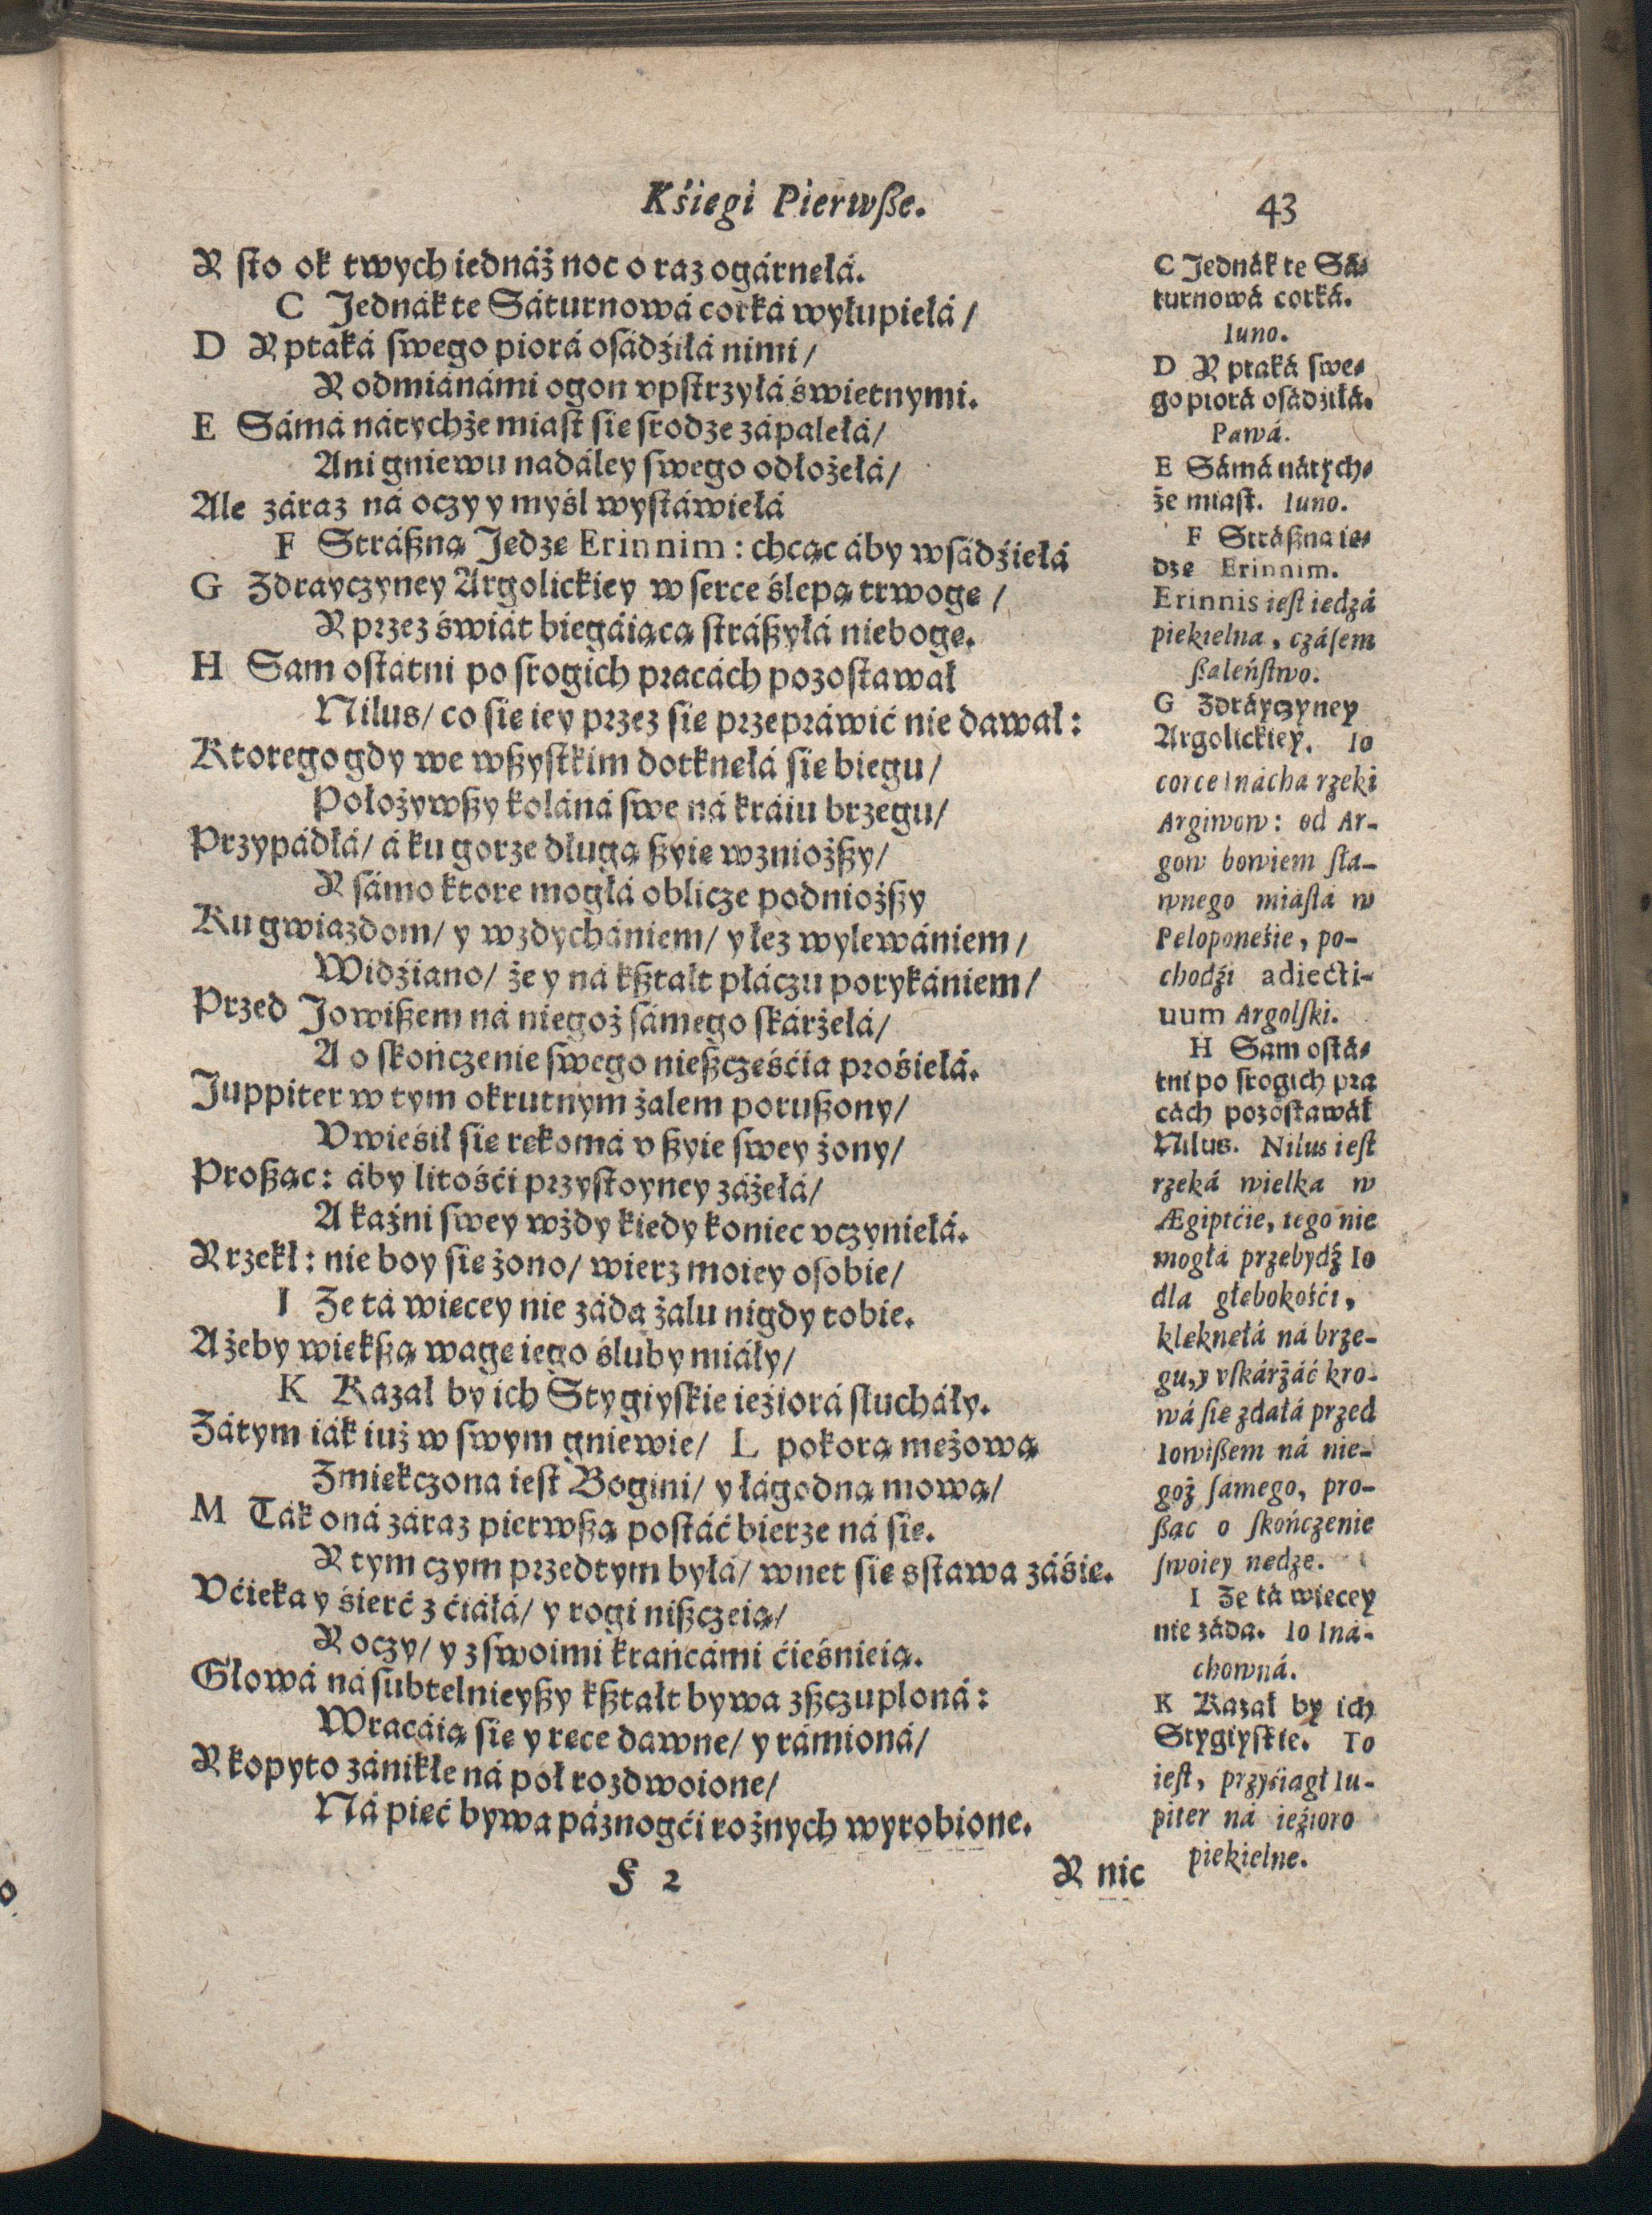 Kśiegi Pierwße. 43
Y sto ok twych iednáż noc o raz ogárnełá.
C Jednák te Sáturnowá corká wyłupiełá /
D Y ptaká swego piorá osádźiłá nimi /
Y odmiánámi ogon vpstrzyłá świetnymi.
E Sámá nátychże miast sie srodze zápalełá/
Ani gniewu nadáley swego odłożełá/
Ale záraz ná oczy y myśl wystáwiełá
F Stráßną Jedze Erinnim : chcąc áby wsádźiełá
G Zdrayczyney Argolickiey w serce ślepą trwoge /
Y przez świát biegáiącą stráßyłá nieboge.
H Sam ostátni po srogich pracách pozostawał
Nilus/ co sie iey przez sie przepráwić nie dawał :
Ktorego gdy we wßystkim dotknełá sie biegu/
Położywßy koláná swe ná kráiu brzegu/
Przypádłá/ á ku gorze długą ßyie wzniożßy/
Y sámo ktore mogłá oblicze podniożßy
Ku gwiazdom/ y wzdychániem/ y łez wylewániem /
Widźiano/ że y ná kßtałt płáczu porykániem /
Przed Jowißem ná niegoż sámego skárżełá/
A o skończenie swego nießcześćia prośiełá.
Juppiter w tym okrutnym żalem porußony/
Vwieśił sie rekomá v ßyie swey żony/
Proßąc : áby litośći przystoyney záżełá/
A kaźni swey wżdy kiedy koniec vczyniełá.
Y rzekł : nie boy sie żono/ wierz moiey osobie/
I Ze tá wiecey nie záda żalu nigdy tobie.
A żeby wiekßą wage iego śluby miáły/
K Kazał by ich Stygiyskie ieźiorá słucháły.
Zátym iák iuż w swym gniewie/ L pokorą meżową
Zmiekczona iest Bogini/ y łágodną mową/
M Ták oná záraz pierwßą postáć bierze ná sie.
Y tym czym przedtym byłá/ wnet sie sstawa záśie.
Vćieka y śierć z ćiáłá/ y rogi nißczeią/
Y oczy/ y z swoimi krańcámi ćieśnieią.
Głowá ná subtelnieyßy kßtałt bywa zßczuploná :
Wracáią sie y rece dawne/ y rámioná/
Y kopyto zánikłe ná poł rozdwoione/
Ná pieć bywa páznogći rożnych wyrobione.
F 2 Y nic
C Jednák te Sá-
turnowá corká.
Iuno.
D Y ptaká swe-
go piorá osádziłá.
Pawá.
E Sámá nátych-
że miast. Iuno.
F Stráßna ie-
dze Erinnim.
Erinnis iest iedzá
piekielna, czásem
ßaleństwo.
G Zdráyczyney
Argolickiey. Io
corce Inácha rzeki
Argiwow : od Ar-
gow bowiem sła-
wnego miástá w
Peloponeśie, po-
chodźi adiecti-
uum Argolski.
H Sam ostá-
tni po srogich pra
cách pozostawáł
Nilus. Nilus iest
rzeká wielka w
Ægiptćie, tego nie
mogłá przebydź Io
dla głebokośći,
kleknełá ná brze-
gu, y vskárżáć kro-
wá sie zdáłá przed
Iowißem ná nie-
goż sámego, pro-
ßac o skończenie
swoiey nedze.
I Ze tá wiecey
nie záda. Io Iná-
chowná.
K Kazał by ich
Stygiyskie. To
iest, przyśiagł Iu-
piter ná ieźioro
piekielne.